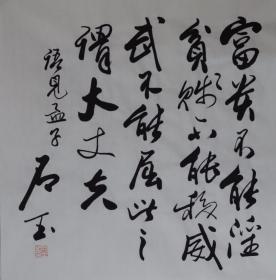 富贵不能淫
貧賤不能移威
武不能屈此之
謂大丈夫
語見孟子
石玉